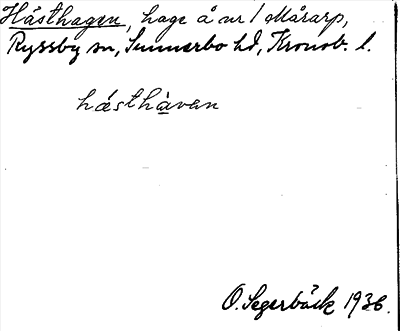 Hästhagen, hage å nr 1 Mårarp,
Ryssby sn, Sunnerbo hd, Kronob. l.
hästhàvan
O. Segerbäck 1936.